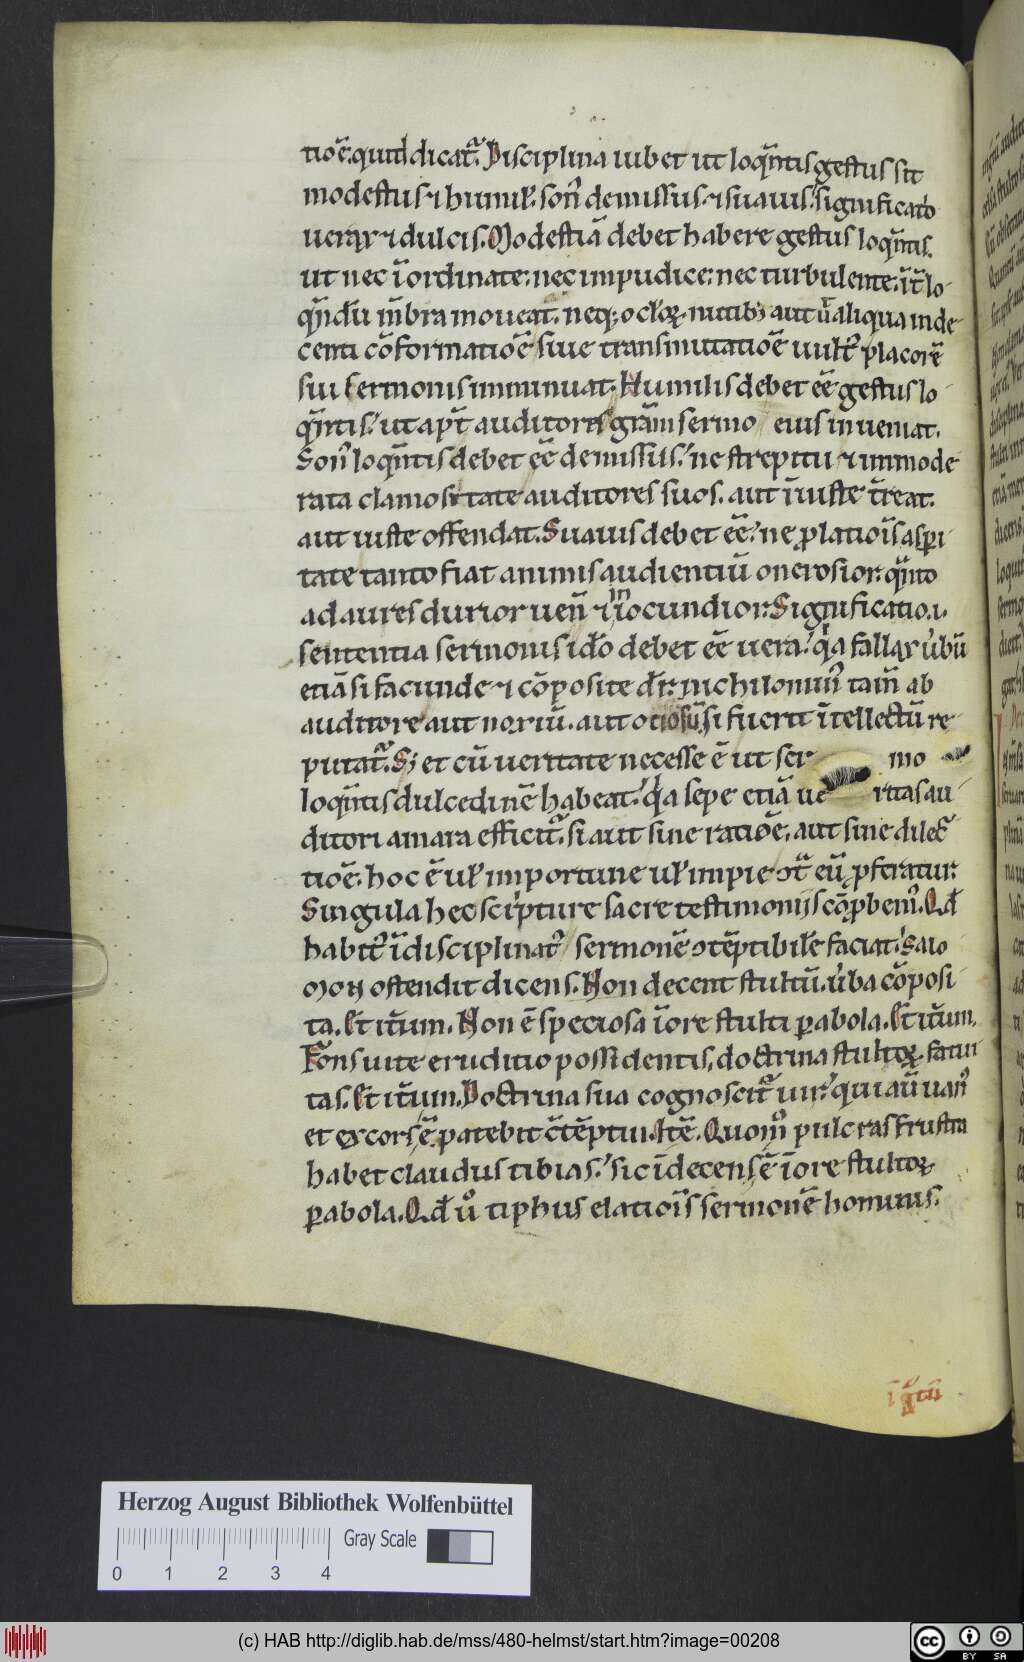 tiōe. quid dicat᷑. Disciplina iubet ut loq̄ntis gestus sit
modestus ⁊ humil̓. son᷒ demissus. ⁊ suauis. significatō
uerax ⁊ dulcis. Modestiā debet habere gestus loq̄ntis.
ut nec īordinate. nec impudice. nec turbulente. īt̄ lo-
q̄ndū m̄bra moueat. neq; oc̄lor̨. nutib; aut ū aliqua inde
centi cōformatiōe siue transmutatiōe uult᷒ placorē
sui sermonis imminuat. Humilis debet eē gestus lo-
q̄ntis. ut ap̄t auditoris grām sermo eius inueniat.
Son᷒ loq̄ntis debet eē demissus. ne strepitu ⁊ immode
rata clamositate auditores suos. aut īiuste t̄reat.
aut iuste offendat. Suauis debet eē. ne ꝓlatiōis asp̄i
tate tanto fiat animis audientiū onerosior. q̄nto
ad aures durior ueń ⁊ īiocundior. Significatio .i.
sententia sermonis idō debet eē uera. q̄a fallax ūbū
etiā si facunde ⁊ cōposite dr̄. nichilomin᷒ tam̄ ab
auditore aut noxiū. aut ociosū si fuerit ītellectū re-
putat᷑. S; et cū ueritate necesse ē ut ser mo
loq̄ntis dulcedinē habeat. q̄a sepe etiā ue ritas au-
ditori amara efficit᷑. si aut sine ratiōe. aut sine dilec̄-
tiōe. hoc ē ul̓ importune ul̓ impie ɔt᷑ eū ꝓferatur.
Singula hec sc̓pture sacre testimonijs cōꝓbem᷒. Qd̄
habit᷒ īdisciplinat᷒ sermonē ɔtēptibilē faciat. Salo
mon ostendit dicens. Non decent stultū. ūba cōposi-
ta. Et it̄um. Non ē speciosa ī ore stulti ꝑabola. Et it̄um.
Fons uite eruditio possidentis. doctrina stultor̨. fatui
tas. Et it̄um. Doctrina sua cognoscit᷑ uir. qui aū uan᷒
et excors ē. patebit c̄tēptui. Itē. Quom᷒ pulcras frustra
habet claudus tibias. sic īdecens ē ī ore stultor̨.
ꝑabola. Qd̄ u᷒ tiphus elatiōis sermonē hominis.
Herzog August Bibliothek Wolfenbüttel
Gray Scale
0 1 2 3 4
(c) HAB http://diglib.hab.de/mss/480-helmst/start.htm?image=00208
cc BY SA